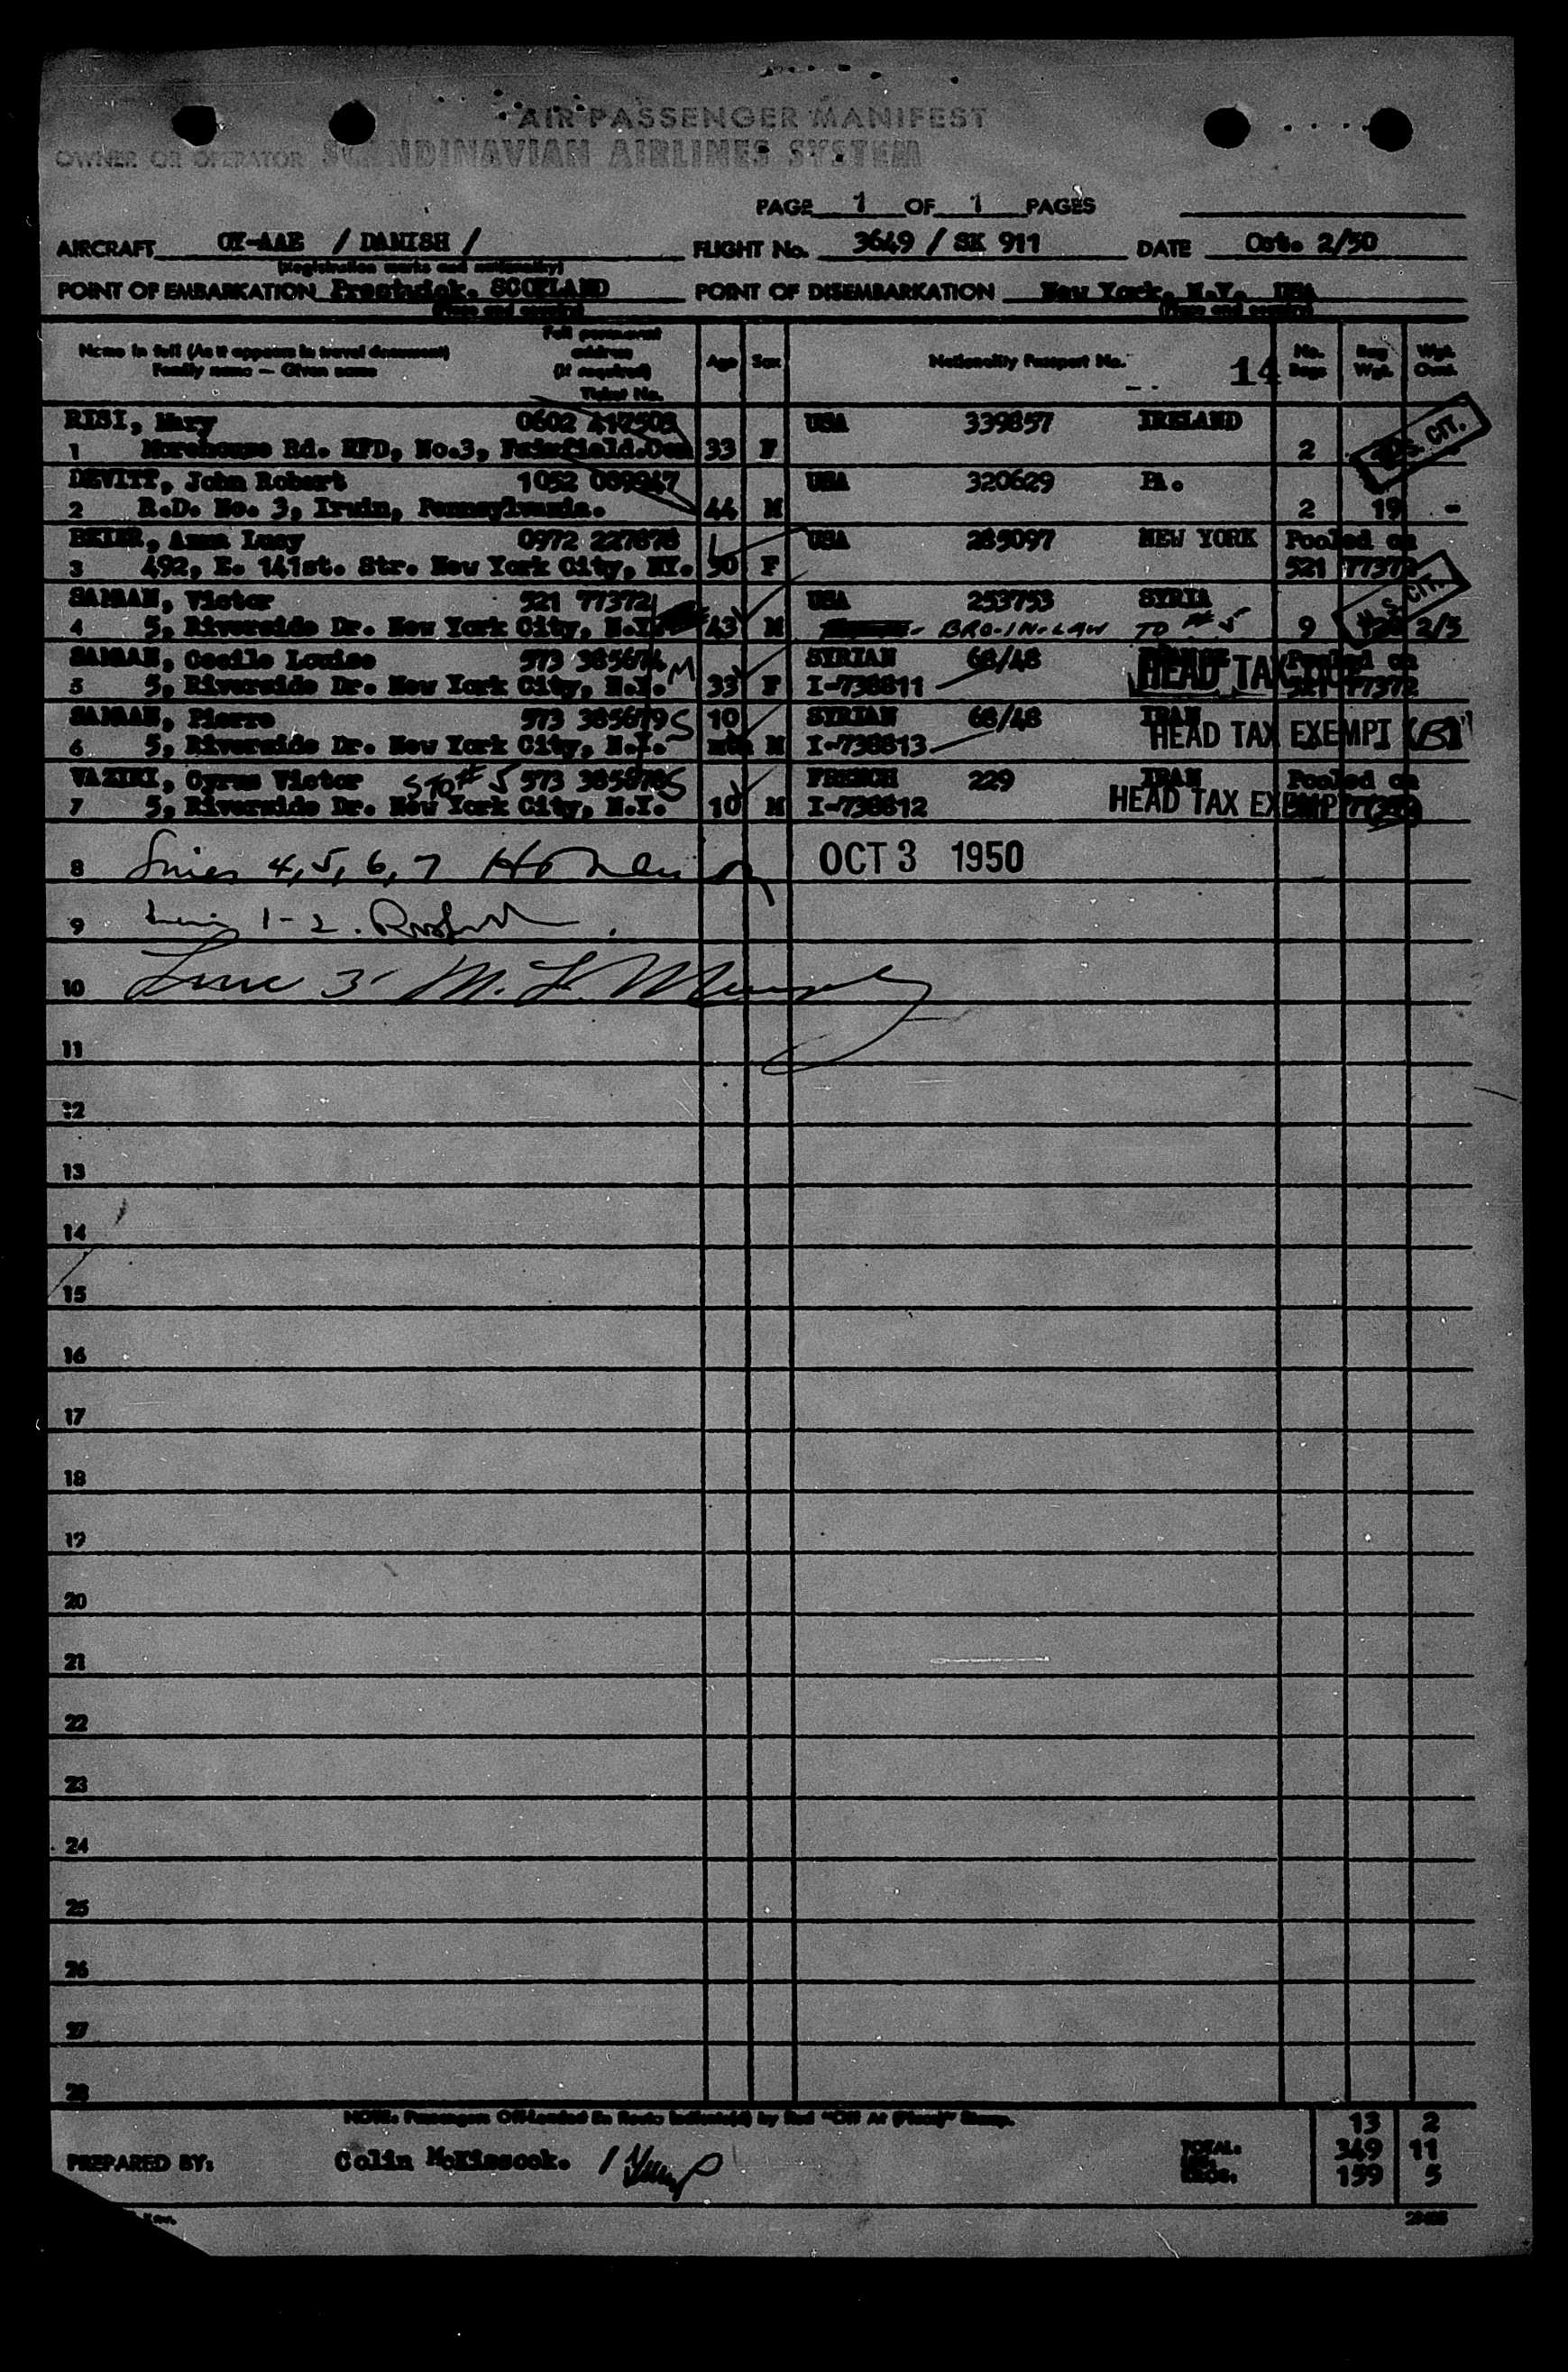 AIR PASSENGER MANIFEST
OWNER OR OPERATOR SCANDINAVIAN AIRLINES SYSTEM
PAGE 1 OF 1 PAGES
AIRCRAFT OY-AAE / DANISH / FLIGHT No. 3649 / SK 911 DATE Oct. 2/50
(Registration marks and nationality)
POINT OF EMBARKATION Prestwick. SCOTLAND POINT OF DISEMBARKATION New York. N.Y. USA
(Place and country) (Place and country)
Name in full (As it appears in travel document) Full permanent address (if required) Age Sex Nationality Passport No. 14 No. Bags Bag Wgt. Wgt.
Family name — Given name Ticket No.
RISI, Mary 0602 417508 USA 339857 IRELAND
1 Morehouse Rd. RFD, No.3, Fairfield. 33 F 2 U.S. CIT.
DEVITT, John Robert 1052 USA 320629 PA.
2 R.D. No. 3, Irwin, Pennsylvania. 44 M 2 19 -
Anna Lucy 0972 227878 USA 285097 NEW YORK Pooled on
3 492, E. 141st. Str. New York City, NY. 50 F 521 77372
SAMAN, Victor 521 77372 USA 253753 SYRIA U.S. CIT.
4 5, Riverside Dr. New York City, N.Y. 43 M - BRO-IN-LAW TO #5 9 2/5
SAMAN, Cecile Louise 573 385674 M SYRIAN 68/48 Pooled on
5 5, Riverside Dr. New York City, N.Y. 33 F I-738811 HEAD TAX 521 77372
SAMAN, Pierre 573 385679 S 10 SYRIAN 68/48 IRAN
6 5, Riverside Dr. New York City, N.Y. mth M I-738813 HEAD TAX EXEMPT (B)
VAZIRI, Cyrus Victor S TO #5 573 S FRENCH 229 IRAN Pooled on
7 5, Riverside Dr. New York City, N.Y. 10 M I-738812 HEAD TAX EXEMPT
8 Lines 4, 5, 6, 7 OCT 3 1950
9 Line 1-2.
10 Line 3 M. F. Murphy
11
12
13
14
15
16
17
18
19
20
21
22
23
24
25
26
27
28
NOTE: Passengers Off-Loaded En Route Indicate(d) by Red "Off At (Place)" Stamp.
13 2
PREPARED BY: Colin McKisscok. TOTAL. 349 11
KGS. 159 5